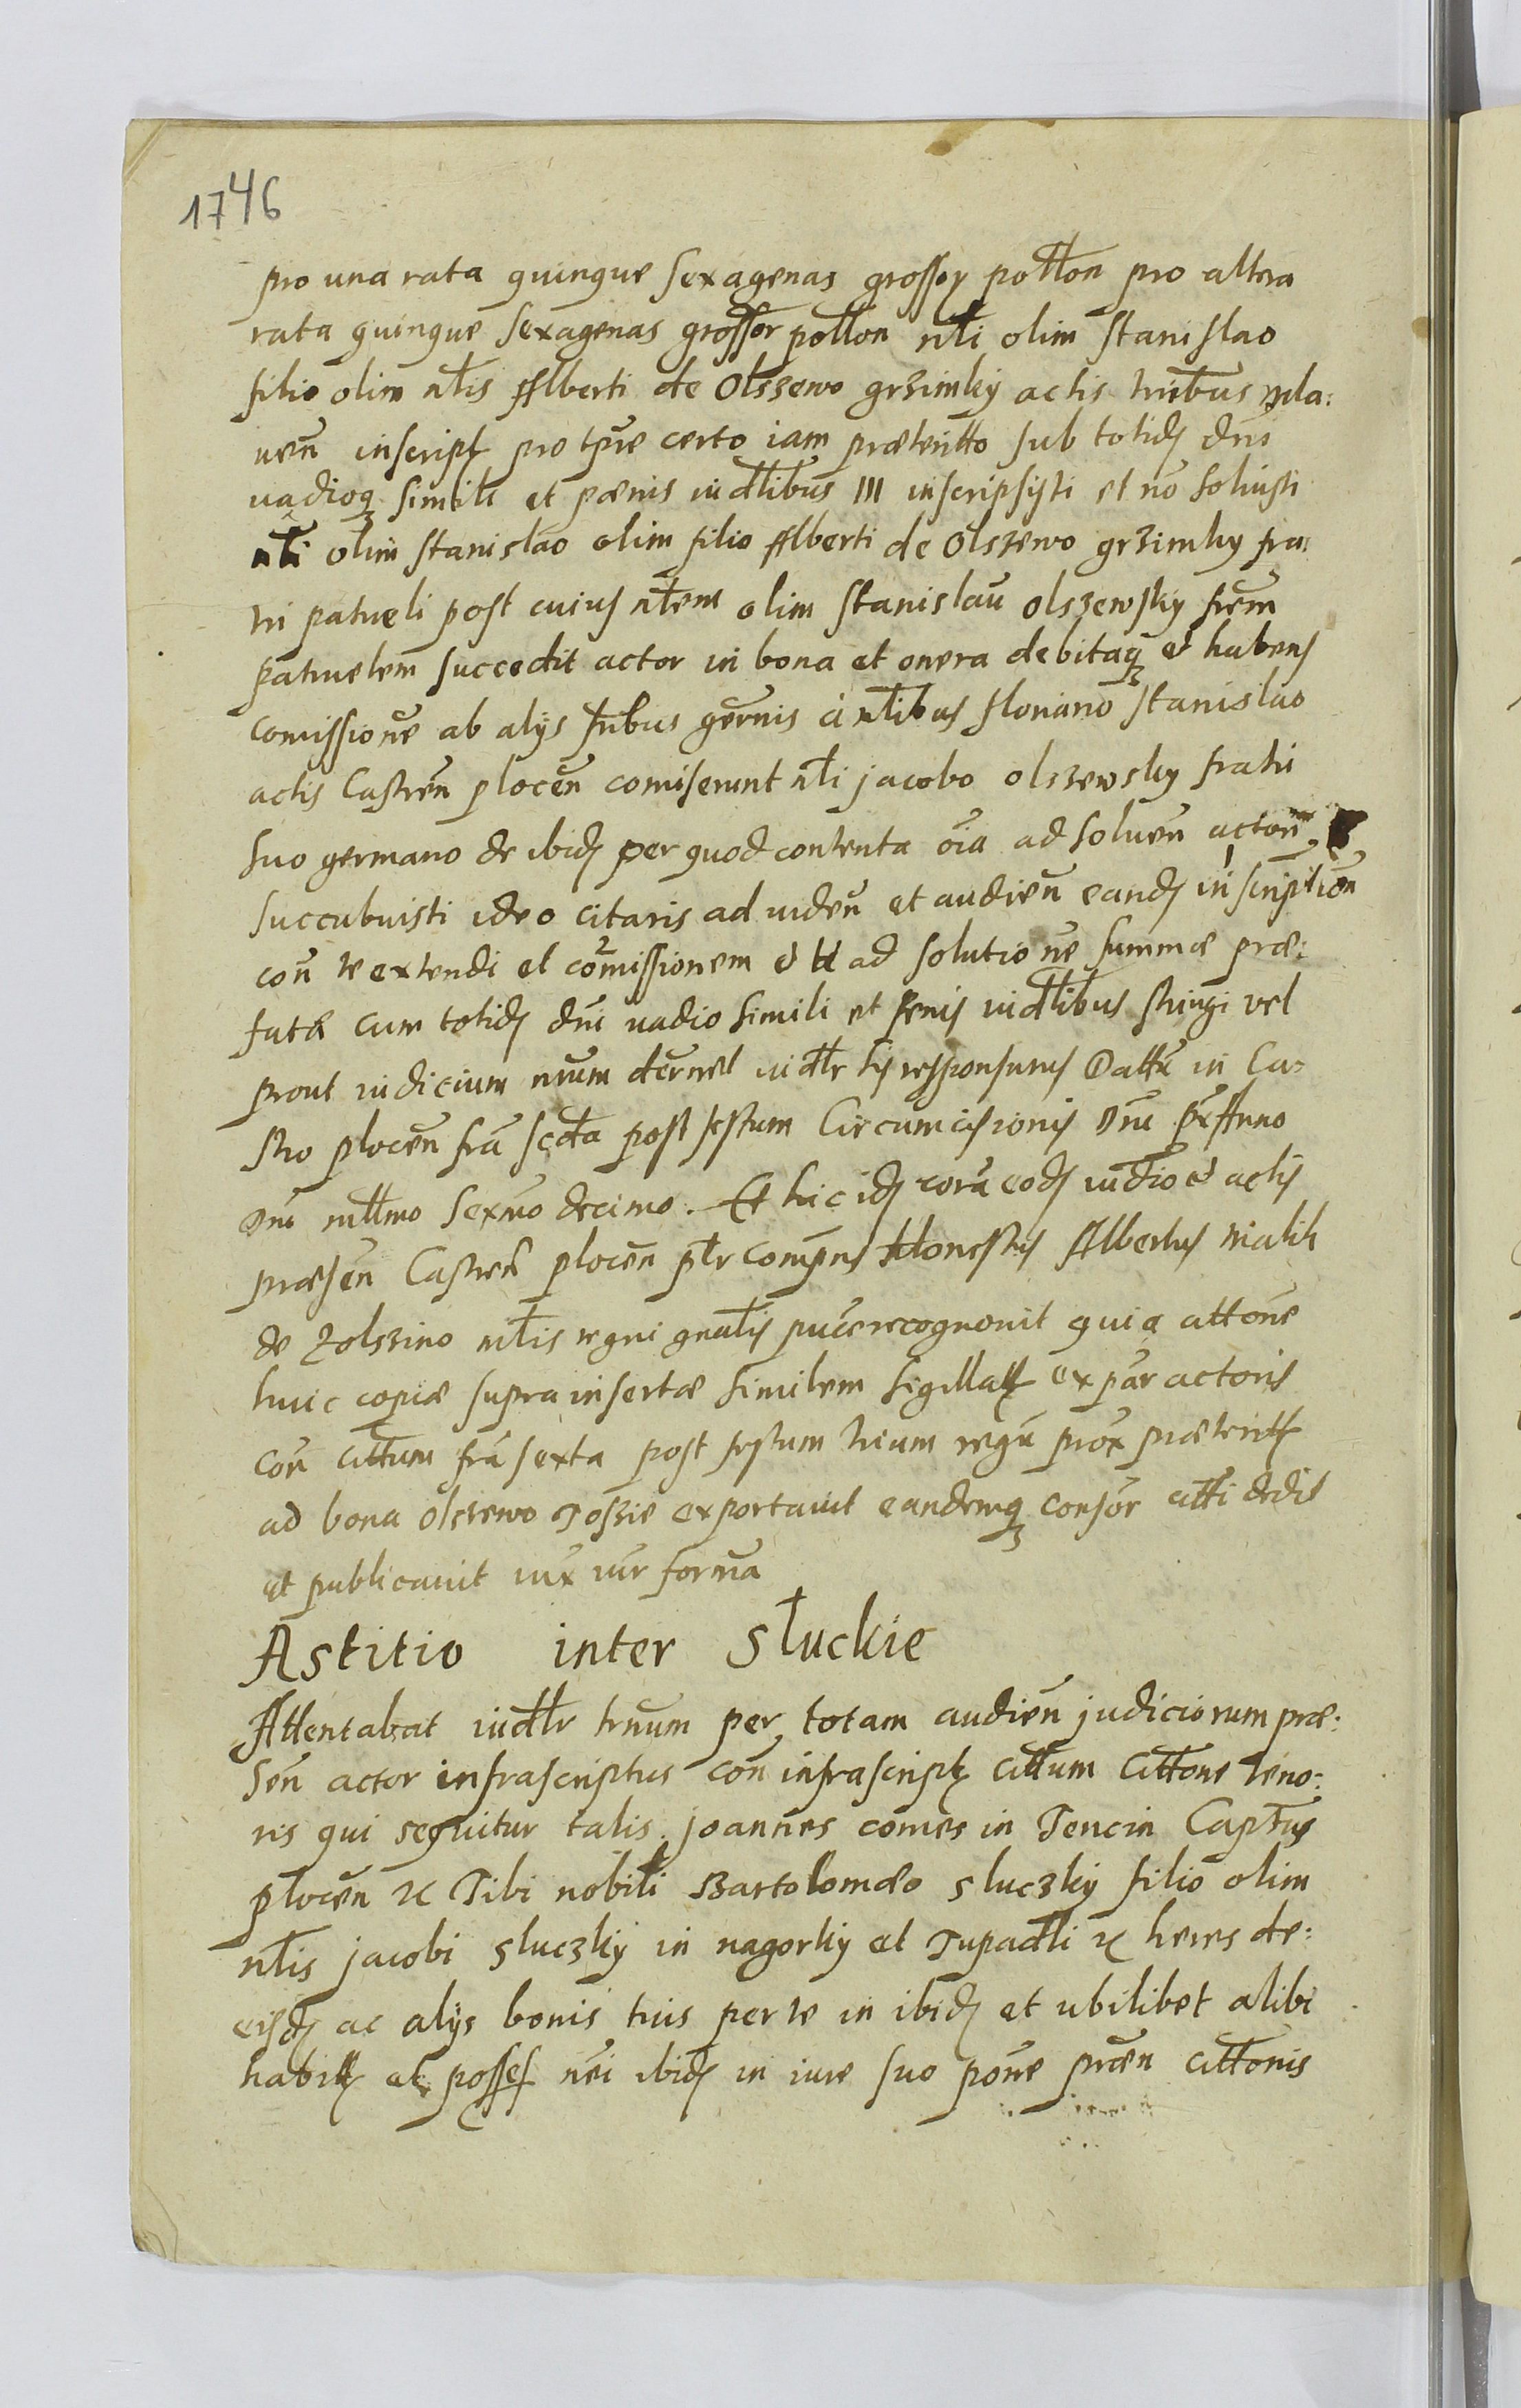 1746
pro una rata quinque sexagenas grossor pollon pro altera
rata quinque sexagenas grossor pollon nli olim stanislao
filio olim nlis Alberti de Olszewo grzimky actis tribus
uen inscript pro tpre certo iam præteritto sub totidz dni
uadioq simili et pænis iudlibus III inscripsisti et no soluisti
nli olim stanislao olim filio Alberti de Olszewo grzimky fra:
tri patrueli post cuius nlem olim stanislau olszewsky frem
patruelem succedit actor in bona et onera debitaq et habens
comissione ab alÿs fribus gernis a nlibus floriano stanislao
actis Castren plocen comiserunt nli jacobo olszewsky fratri
suo germano de ibidz per quod contenta oia ad soluen
succubuisti ideo citaris ad uiden et audien eandz inscription
con te extendi et comissionem et ad solutione summæ præ:
fatæ cum totidz dni uadio simili et penis iudlibus stringi vel
prout iudicium nrum decrnet iudlr his responsurus Dattu in Ca:
stro plocen fra scda post festum Circumcisionis Dni prx Anno
Dni millmo Sexmo decimo. Et hic idz cora eodz iudio et actis
præsen Castren plocen plr compns Honestus Albertus
de Zolszino nlis regni gnalis puce recognouit quia attone
huic copiæ suprainsertæ similem sigillatt ex par actoris
con cittum fra sexta post festum trium regu prox præteritt
ad bona olszewo Toszie exportauit eandemq consor atti dedit
et publicauit iux iur forma
Astitio inter słuckie
Attentabat iudlr trnum per totam audien judiciorum præ:
sen actor infrascriptus con infrascript cittum cittone teno:
ris qui sequitur talis. joannes comes in Tencin Captus
plocen etc Tibi nobili Bartolomæo sluczky filio olim
nlis jacobi sluczky in nagorky et Tupadli etc heres de:
eisdz ac alÿs bonis tuis per te in ibidz et ubilibet alibi
habitt et posses nei ibidz in iure suo pone præn cittonis